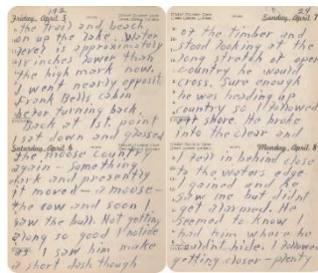 192
Friday, April 5
the trail and beach
on up the lake. Water
level is approximately
18 inches lower than
the high mark now.
I went nearly opposit
Frank Bells cabin
befor turning back.
Back at 1st. point
I sat down and glassed
Saturday, April 6
the moose country
again - Something
dark and presently
it moved - a moose -
the cow and soon I
saw the bull. Not getting
along so good I notice
as I saw him make
a short dash though
Sunday, April 7
of the timber and
stood looking at the
long stretch of open
country he would
cross. Sure enough
he was heading up
country so I followed
at shore. He broke
into the clear and
Monday, April 8
I fell in behind close
to the waters edge.
I gained and he
saw me but didnt
get alarmed. He
seemed to know I
had him where he
couldnt hide. I followed
getting closer - plenty